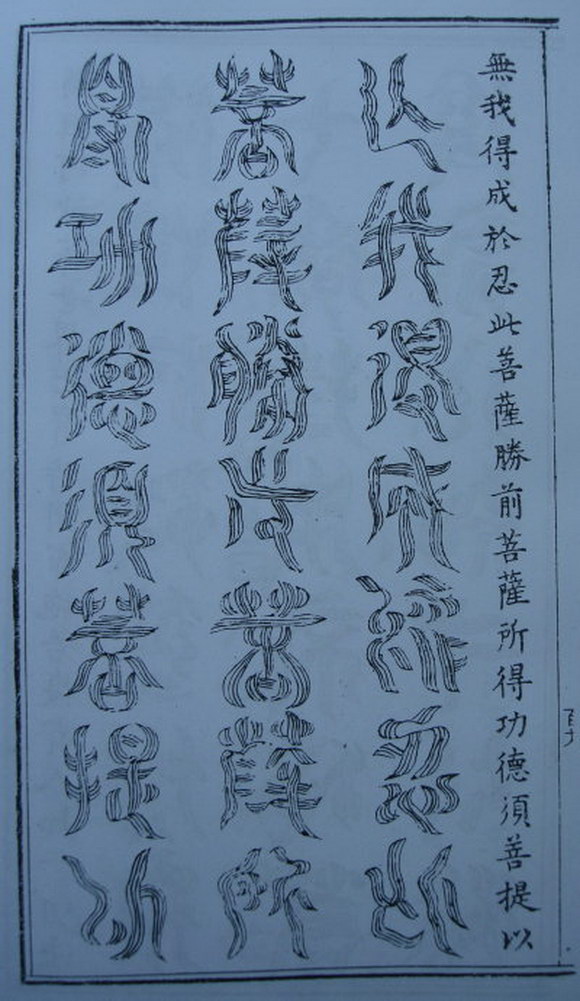 無我得成於忍此菩薩勝前菩薩所得功德須菩提以
無我得成於忍此
菩薩勝前菩薩所
得功德須菩提以